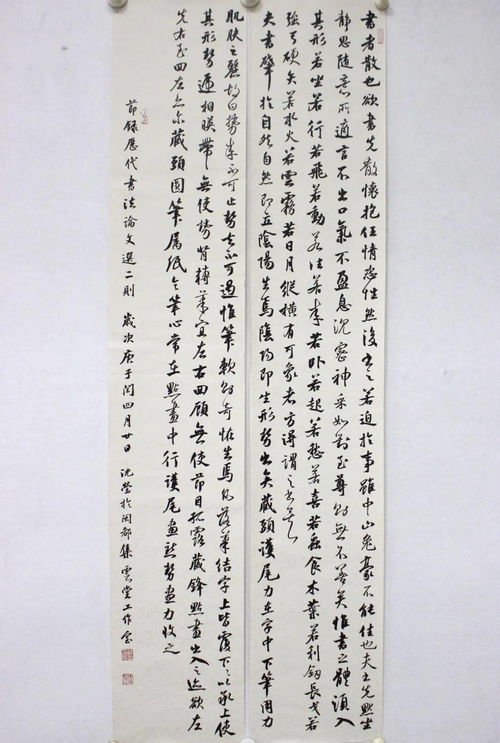 書者散也欲書先散懷抱任情恣性然後書之若迫於事雖中山兔毫不能佳也夫書先默坐
靜思隨意所適言不出口氣不盈息沉密神采如對至尊則無不善矣惟書之體須入
其形若坐若行若飛若動若往若來若卧若起若愁若喜若蟲食木葉若利劍長戈若
強弓硬矢若水火若雲霧若日月縱橫有可象者方得謂之書矣
夫書肇於自然自然即立陰陽生焉陰陽即生形勢出矣藏頭護尾力在字中下筆用力
肌膚之麗故曰勢來不可止勢去不可遏惟筆軟則奇怪生焉凡落筆結字上皆覆下下以承上使
其形勢遞相映帶無使勢背轉筆宜左右回顧無使節目孤露藏鋒點畫出入之迹欲左
先右至回左亦尔藏頭圓筆属紙令筆心常在點畫中行護尾畫點勢盡力收之
節録歷代書法論文選二則 歲次庚子閏四月廿日 沈瑩於閩都集雲堂工作室